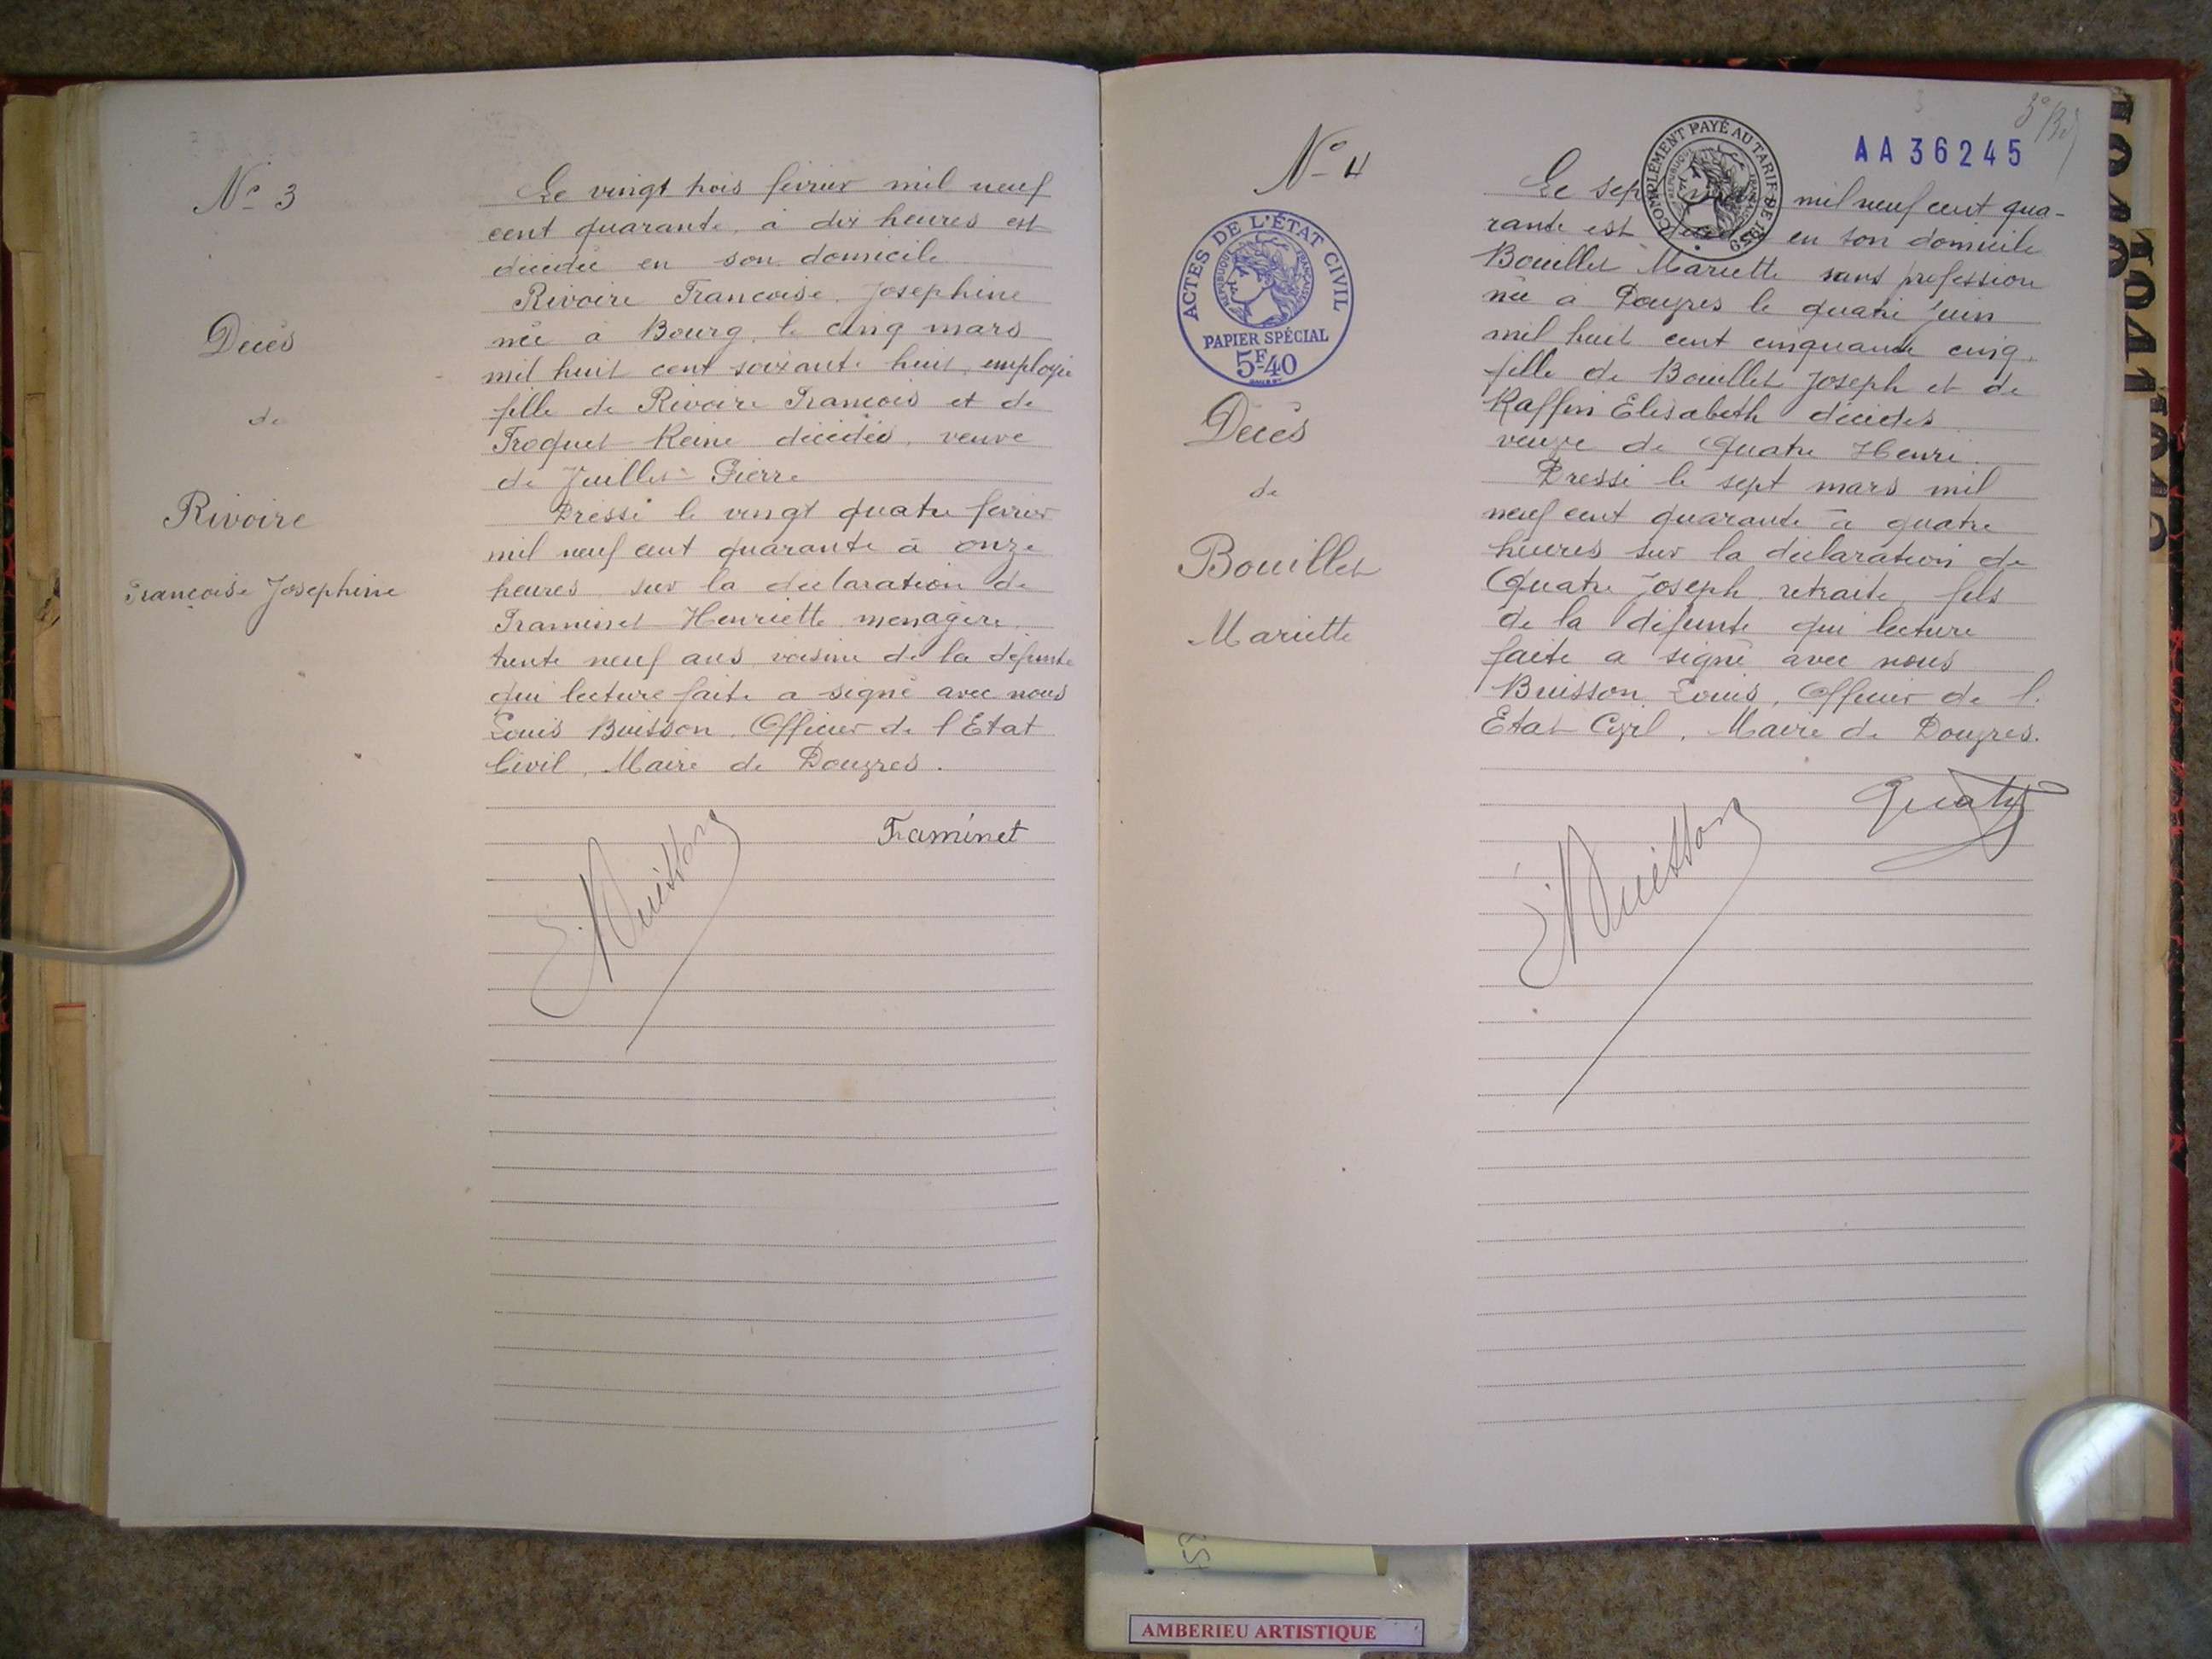 N° 3
Décès
de
Rivoire
Françoise Josephine
Le vingt trois février mil neuf
cent quarante, à dix heures est
décédée en son domicile
Rivoire Françoise, Josephine
née à Bourg, le cinq mars
mil huit cent soixante huit, employée
fille de Rivoire François et de
Troquet Reine décédés, veuve
de Juillet Pierre
Dressé le vingt quatre février
mil neuf cent quarante à onze
heures sur la déclaration de
Traminet Henriette ménagère
trente neuf ans, voisine de la défunte
qui lecture faite a signé avec nous
Louis Buisson, Officier de l'Etat
Civil, Maire de Douvres.
Traminet
Buisson
N° 4
ACTES DE L'ÉTAT CIVIL
RÉPUBLIQUE FRANÇAISE
PAPIER SPÉCIAL
5F40
Décès
de
Bouillet
Mariette
AA36245
COMPLÉMENT PAYÉ AU TARIF DE 1939
RÉPUBLIQUE FRANÇAISE
Le sept mil neuf cent qua-
rante est en son domicile
Bouillet Mariette sans profession
née à Douvres le quatre juin
mil huit cent cinquante cinq,
fille de Bouillet Joseph et de
Raffin Elisabeth décédés
veuve de Quatre Henri.
Dressé le sept mars mil
neuf cent quarante à quatre
heures sur la déclaration de
Quatre Joseph, retraité, fils
de la défunte qui lecture
faite a signé avec nous
Buisson Louis, Officier de l'
Etat Civil, Maire de Douvres.
Quatre
Buisson
1940
1941
AMBERIEU ARTISTIQUE